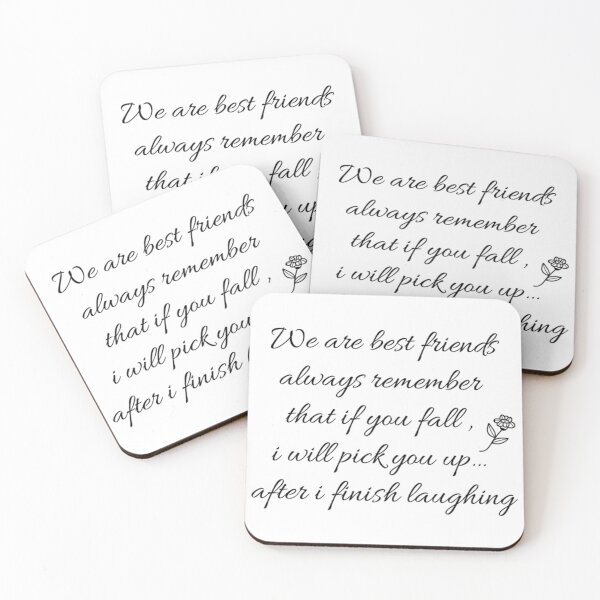 We are best friends
always remember
that if you fall
up
We are best friends
always remember
that if you fall ,
i will pick you up...
hing
We are best friends
always remember
that if you fall ,
i will pick you
after i finish
We are best friends
always remember
that if you fall ,
i will pick you up...
after i finish laughing